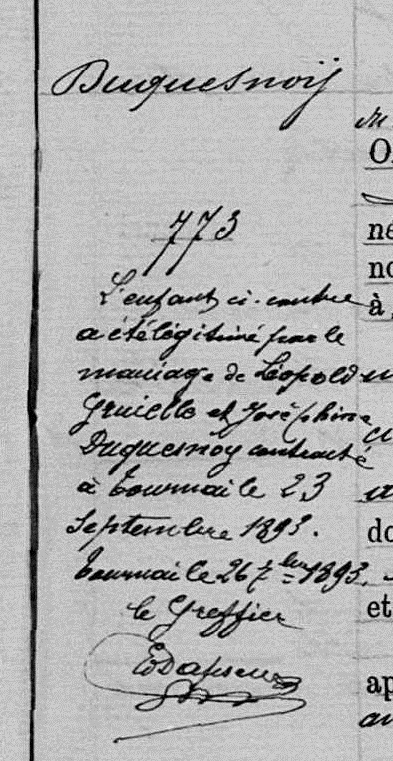 Duquesnoÿ
773
L'enfant ci-contre
a été légitimé par le
mariage de Léopold
Gruielle et Joséphine
Duquesnoy contracté
à Tournai le 23
Septembre 1893.
Tournai le 26 7bre 1893.
le Greffier
O
né
no
à
do
et
ap